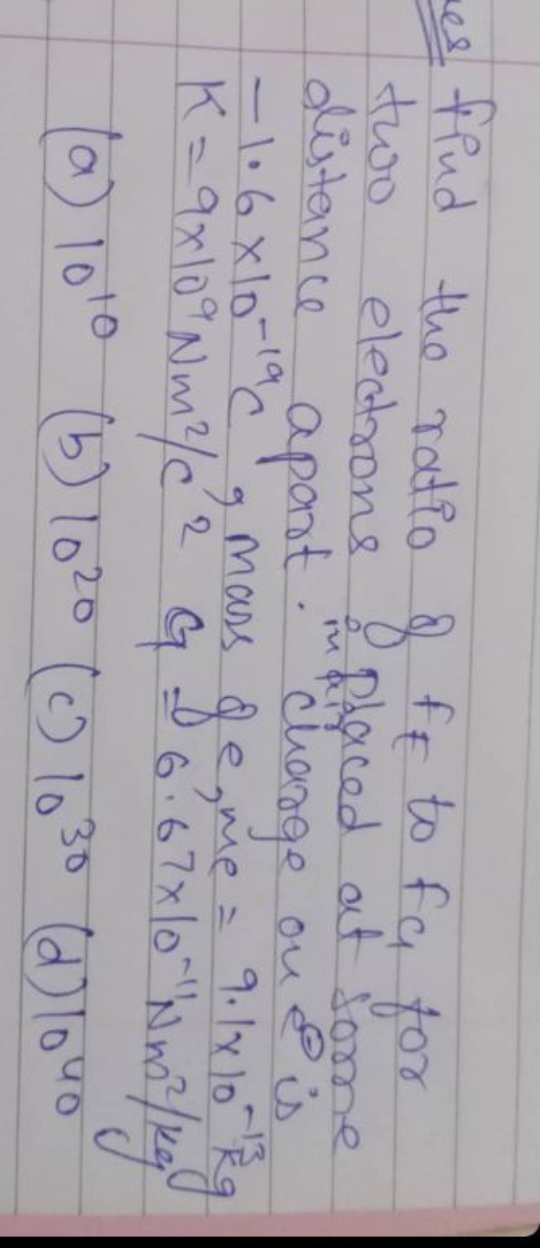 ues find the ratio of FE to FG for
two electrons placed at some
in air
distance apart. Charge on e⊖ is
-1.6 x 10⁻¹⁹C, mass of e, me = 9.1x10⁻¹³kg
K = 9x10⁹Nm²/c² G = 6.67x10⁻¹¹Nm²/kg
(a) 10¹⁰ (b) 10²⁰ (c) 10³⁰ (d) 10⁴⁰